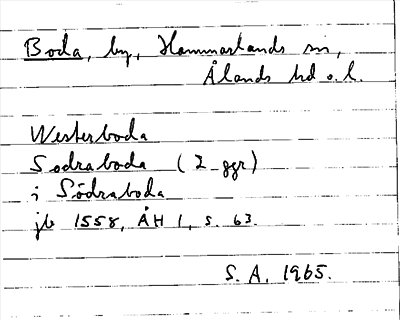 Boda, by, Hammarlands sn,
Ålands hd o. l.
Westerboda
Sodraboda (2 ggr)
i Södraboda
jb 1558, ÅH 1, s. 63.
S. A. 1965.